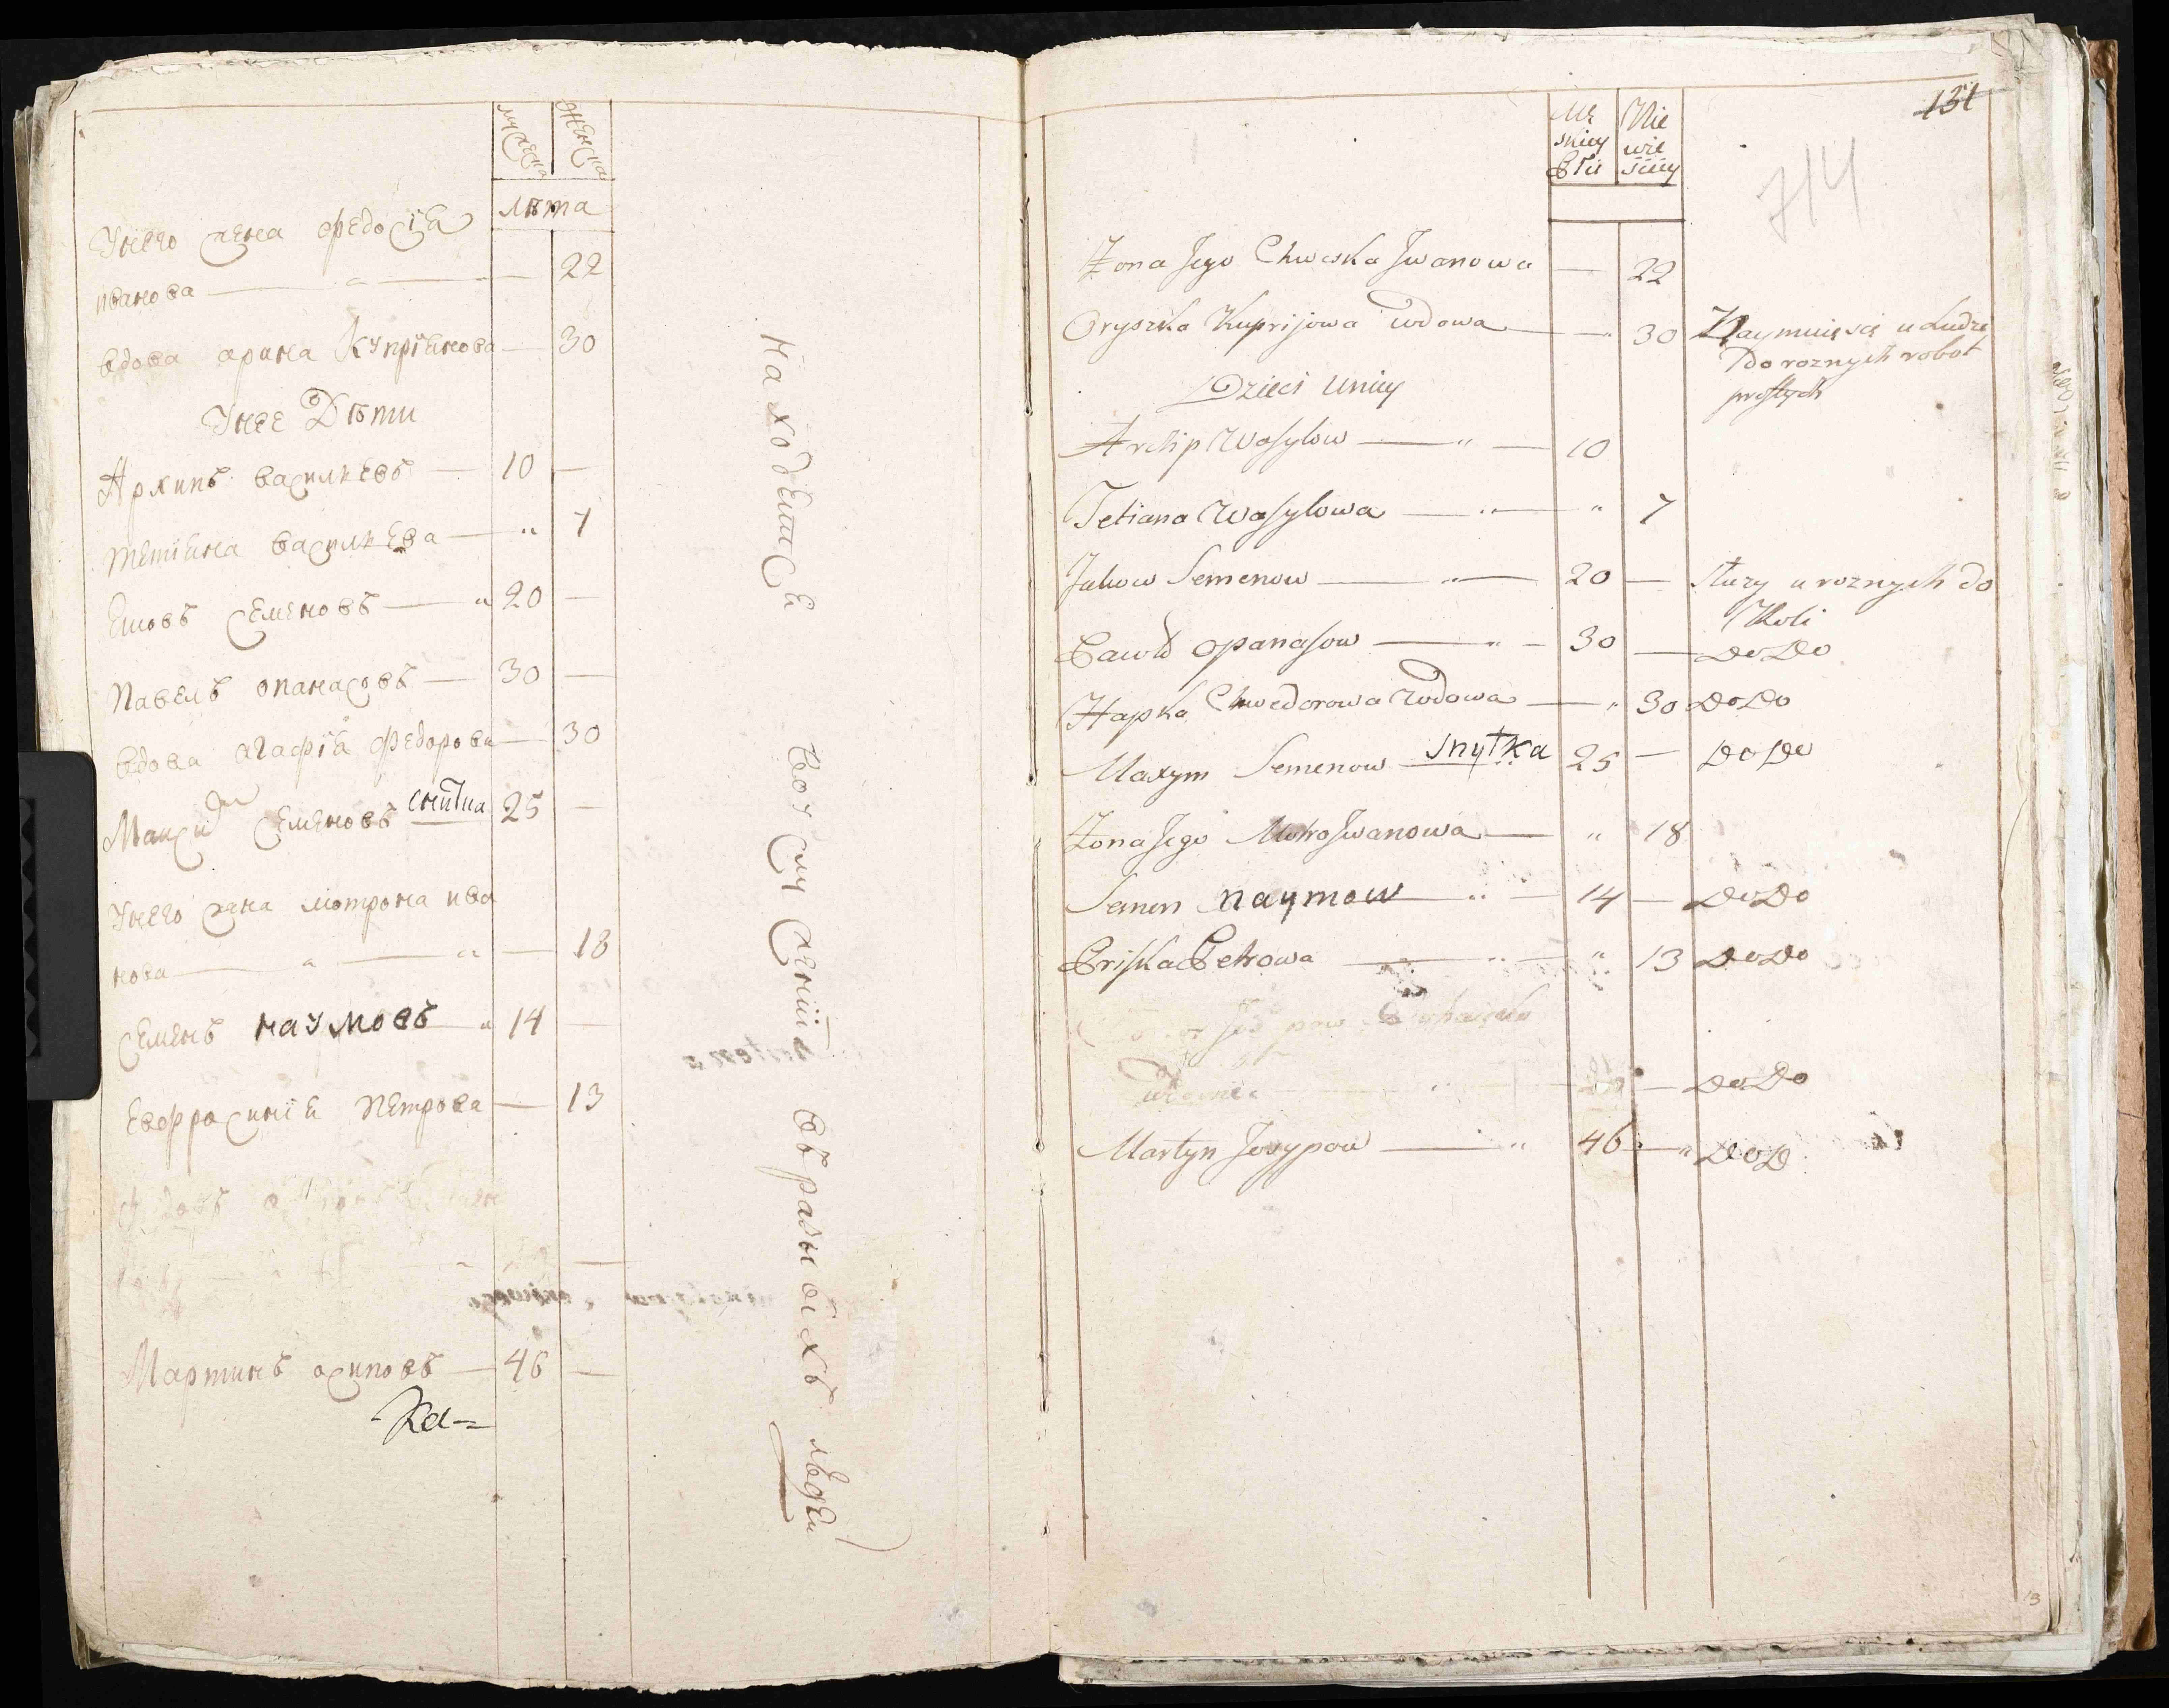 мужеска женска
лѣта
Унего жена федосїя
иванова — 22
вдова арина Купрїянова — 30
Унее Дѣти
Архипъ васильевъ — 10 —
тетїяна васильева — " 7
Яковъ семеновъ — " 20 —
Павелъ опанасовъ — 30 —
вдова агафїя федорова — 30
Максим семеновъ снитка 25 —
Унего жена мотрона ива
нова — " — " — 18
семенъ наумовъ " 14 —
евфросинїя петрова — 13
Мартинъ осиповъ — 46 —
находятся
во услуженїи
вразныхъ
людей
131
714
Mę
skiey
Płci
Nie
wie
sciey
Żona Jego Chweska Jwanowa — 22
Oryszka Kuprijowa wdowa — " 30 Naymuie się u Ludzi
Do roznych robot
prostych
Dzieci Uniey
Archip Wasylow — " — 10
Tetiana Wasylowa — " — " 7
Jakow Semenow — " — 20 — służy u roznych do
Woli
Pawło Opanasow — " — 30 — DoDo
Hapka Chwedorowa Wdowa — " 30 DoDo
Maxym Semenow Snytka 25 — DoDo
Żona Jego Motra Jwanowa — " 18
Semen naymow " — 14 — DoDo
Priska Petrowa — " — " 13 DoDo
— DoDo
Martyn Josypow — " 46 — " DoD